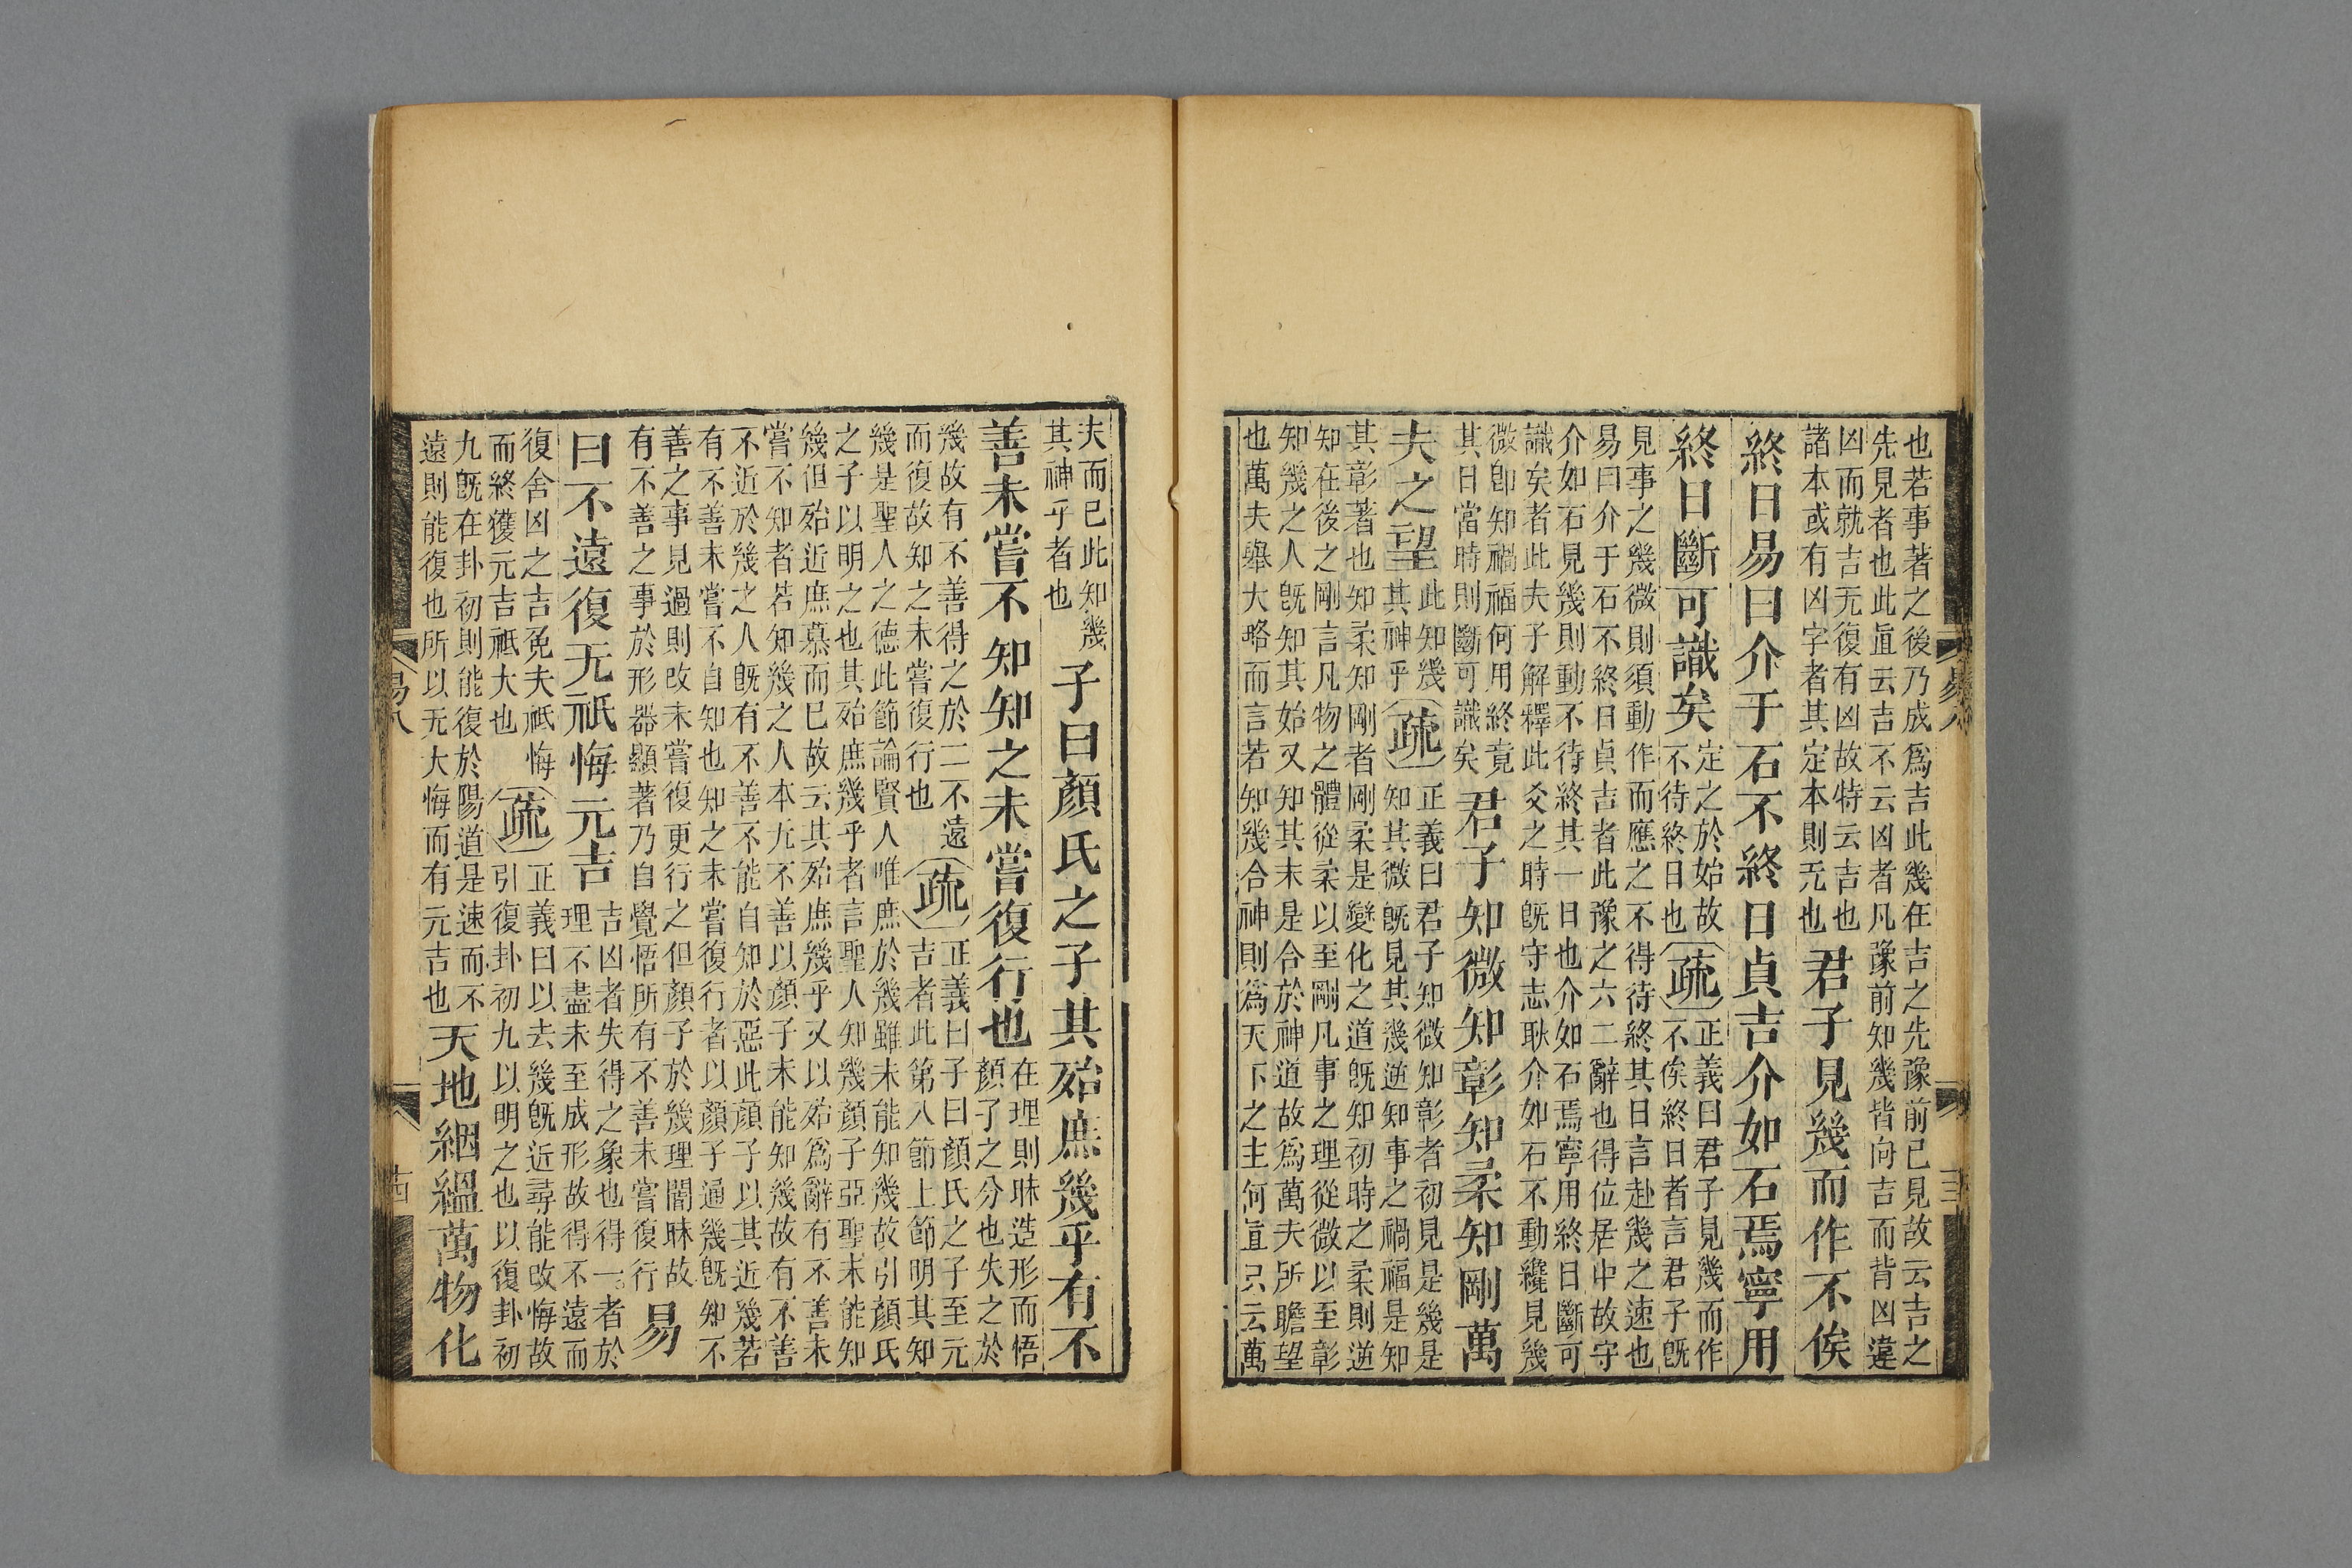 也若事著之後乃成爲吉此幾在吉之先豫前已見故云吉之
先見者也此直云吉不云凶者凡豫前知幾皆向吉而背凶違
凶而就吉无復有凶故特云吉也
諸本或有凶字者其定本則无也
君子見幾而作不俟
終日易曰介于石不終日貞吉介如石焉寧用
終日斷可識矣
定之於始故
不待終日也
疏
正義曰君子見幾而作
不俟終日者言君子旣
見事之幾微則須動作而應之不得待終其日言赴幾之速也
易曰介于石不終日貞吉者此豫之六二辭也得位居中故守
介如石見幾則動不待終其一日也介如石焉寧用終日斷可
識矣者此夫子解釋此爻之時旣守志耿介如石不動纔見幾
微卽知禍福何用終竟
其日當時則斷可識矣
君子知微知彰知柔知剛萬
夫之望
此知幾
其神乎
疏
正義曰君子知微知彰者初見是幾是
知其微旣見其幾逆知事之禍福是知
其彰著也知柔知剛者剛柔是變化之道旣知初時之柔則逆
知在後之剛言凡物之體從柔以至剛凡事之理從微以至彰
知幾之人旣知其始又知其末是合於神道故爲萬夫所瞻望
也萬夫舉大略而言若知幾合神則爲天下之主何直只云萬
易八
十三
夫而已此知幾
其神乎者也
子曰顏氏之子其殆庶幾乎有不
善未嘗不知知之未嘗復行也
在理則昧造形而悟
顏子之分也失之於
幾故有不善得之於二不遠
而復故知之未嘗復行也
疏
正義曰子曰顏氏之子至元
吉者此第八節上節明其知
幾是聖人之德此節論賢人唯庶於幾雖未能知幾故引顏氏
之子以明之也其殆庶幾乎者言聖人知幾顏子亞聖未能知
幾但殆近庶慕而已故云其殆庶幾乎又以殆爲辭有不善未
嘗不知者若知幾之人本无不善以顏子未能知幾故有不善
不近於幾之人旣有不善不能自知於惡此顏子以其近幾若
有不善未嘗不自知也知之未嘗復行者以顏子通幾旣知不
善之事見過則改未嘗復更行之但顏子於幾理闇昧故
有不善之事於形器顯著乃自覺悟所有不善未嘗復行
易
曰不遠復无祇悔元吉
吉凶者失得之象也得一者於
理不盡未至成形故得不遠而
復舍凶之吉免夫祇悔
而終獲元吉祇大也
疏
正義曰以去幾旣近尋能改悔故
引復卦初九以明之也以復卦初
九旣在卦初則能復於陽道是速而不
遠則能復也所以无大悔而有元吉也
天地絪縕萬物化
易八
十四